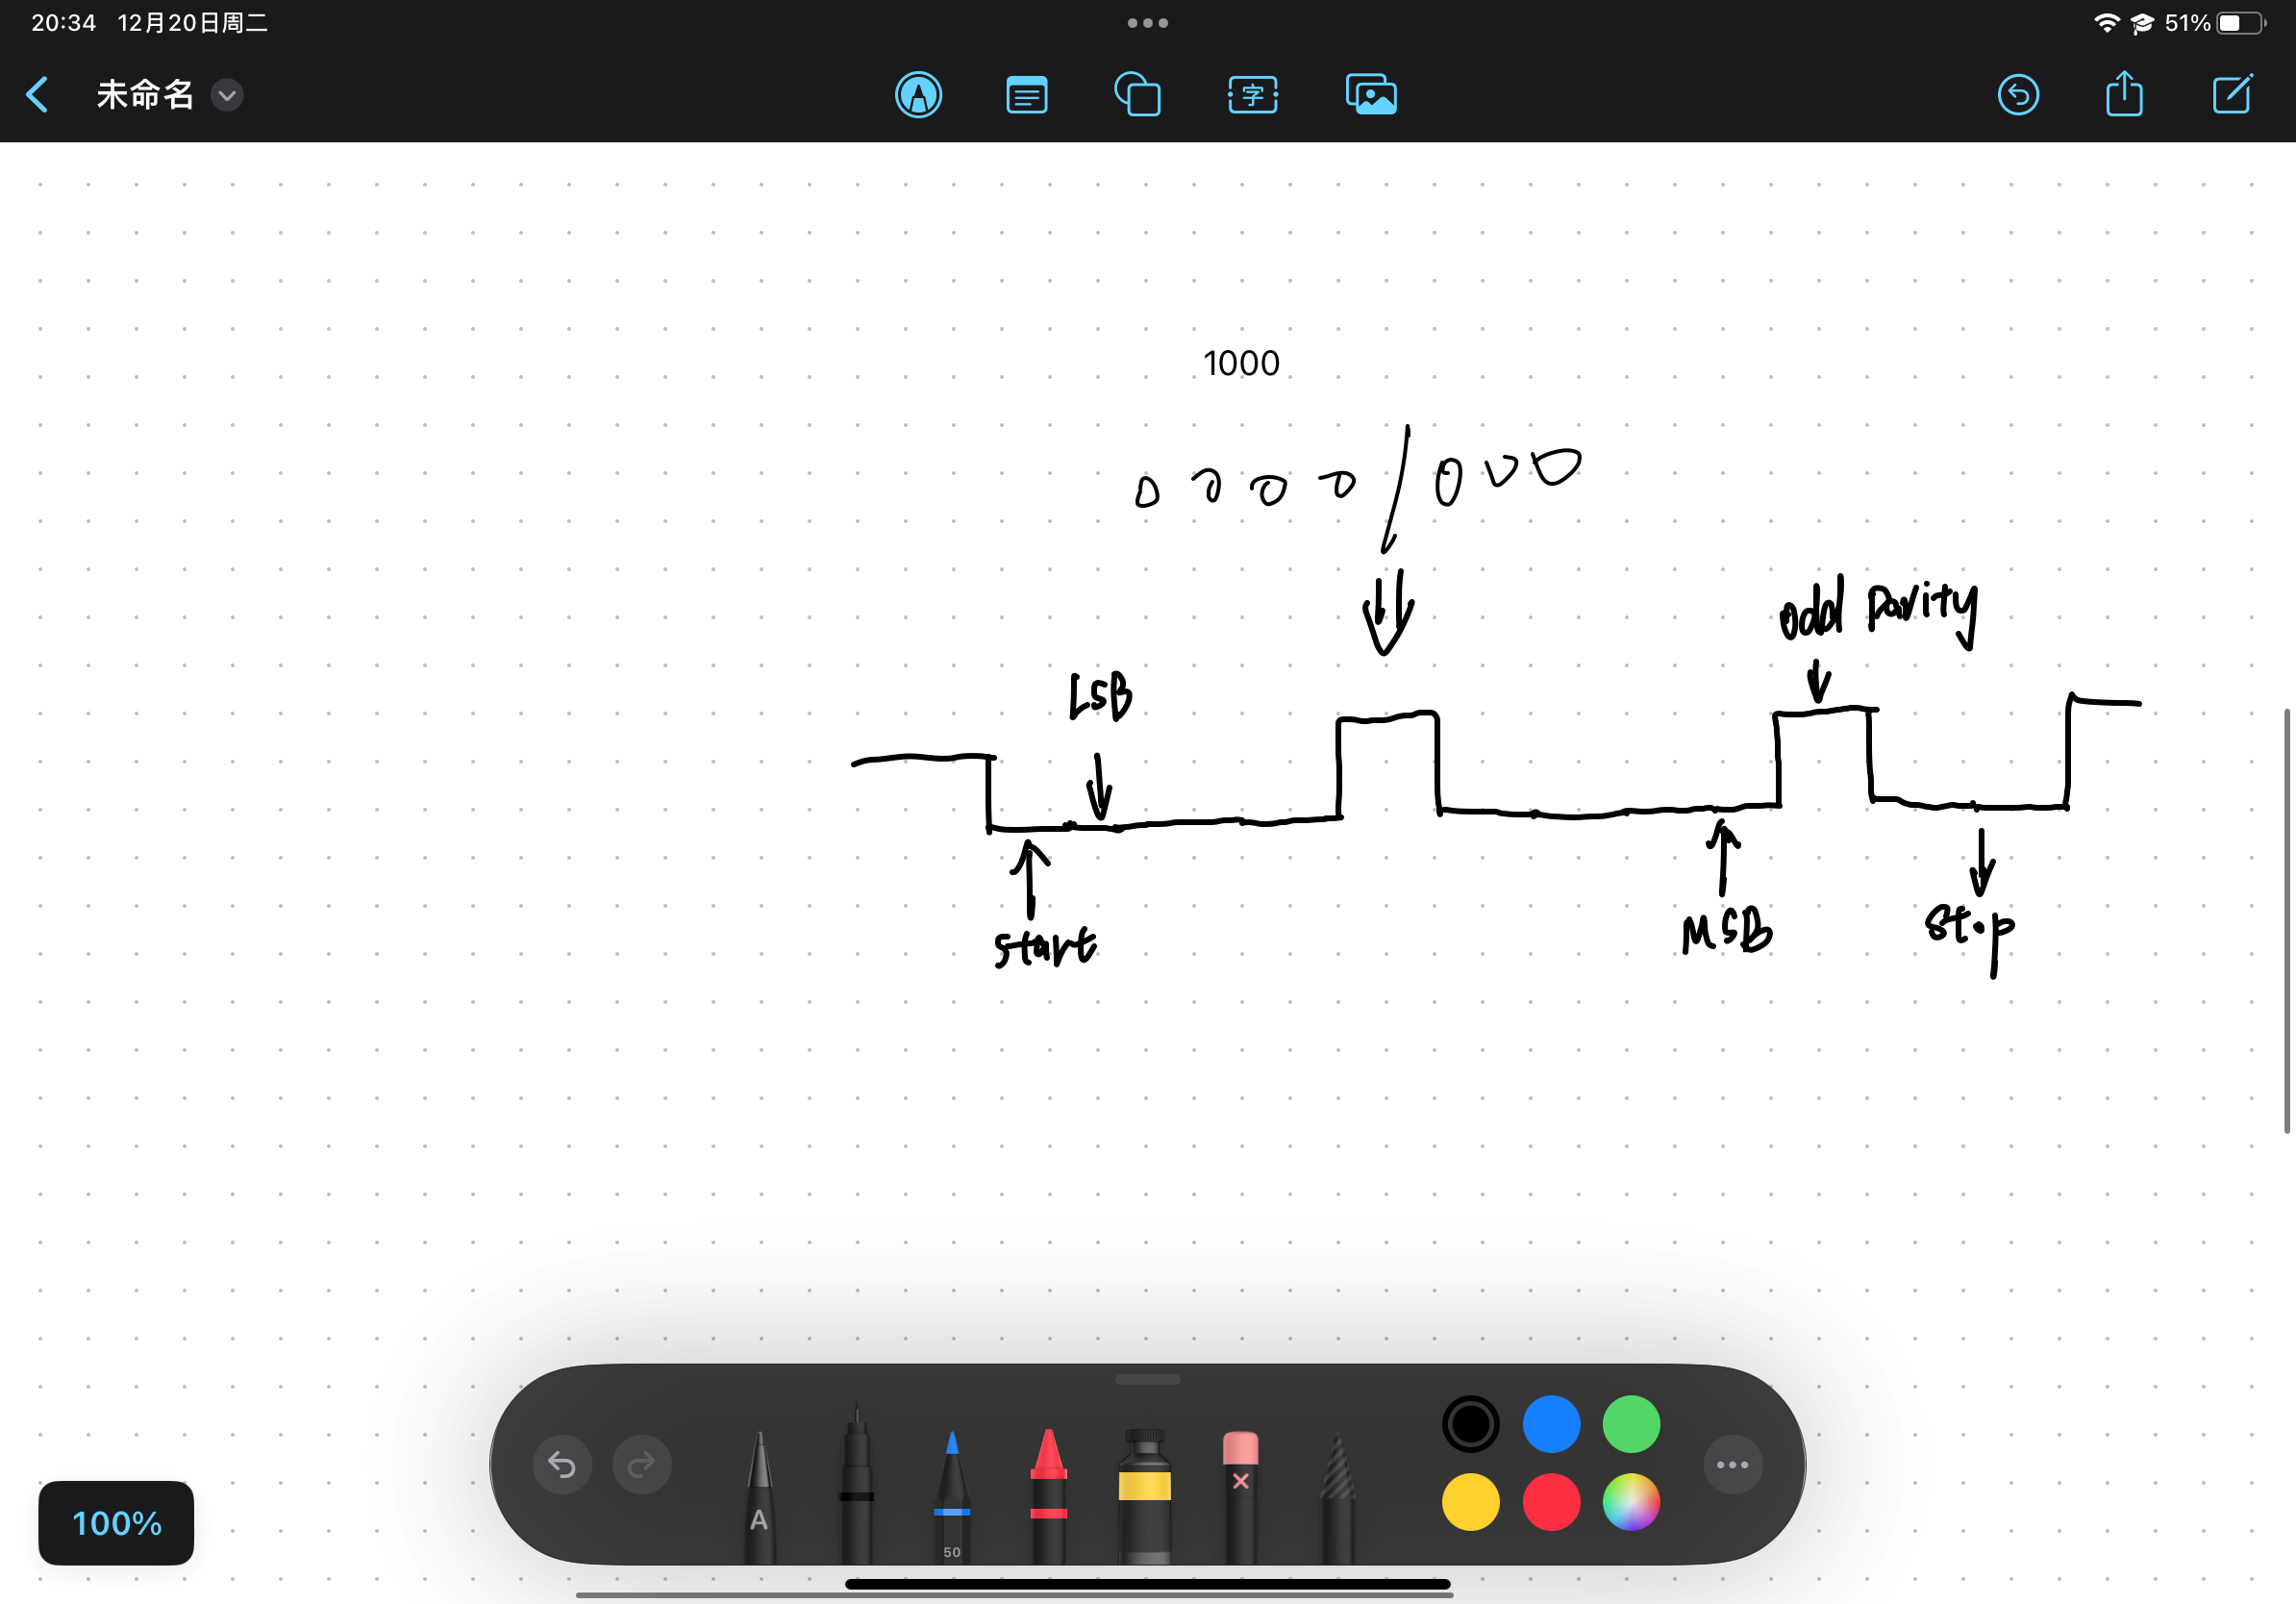 20:34 12月20日周二
51%
未命名
字
1000
0 0 0 0 1 0 0 0
odd parity
LSB
start
MSB
stop
A
50
100%